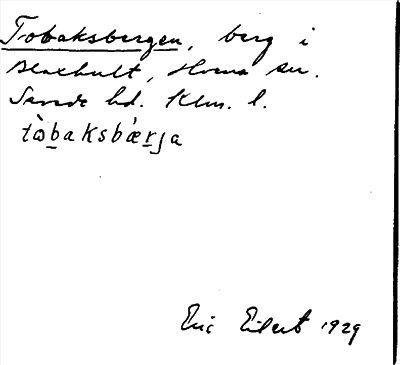 Tobaksbergen, berg i
Blaxhult, Hvena sn.
Sevede hd. Klm. l.
tòbaksbæ̀rja
Eric Eilert 1929